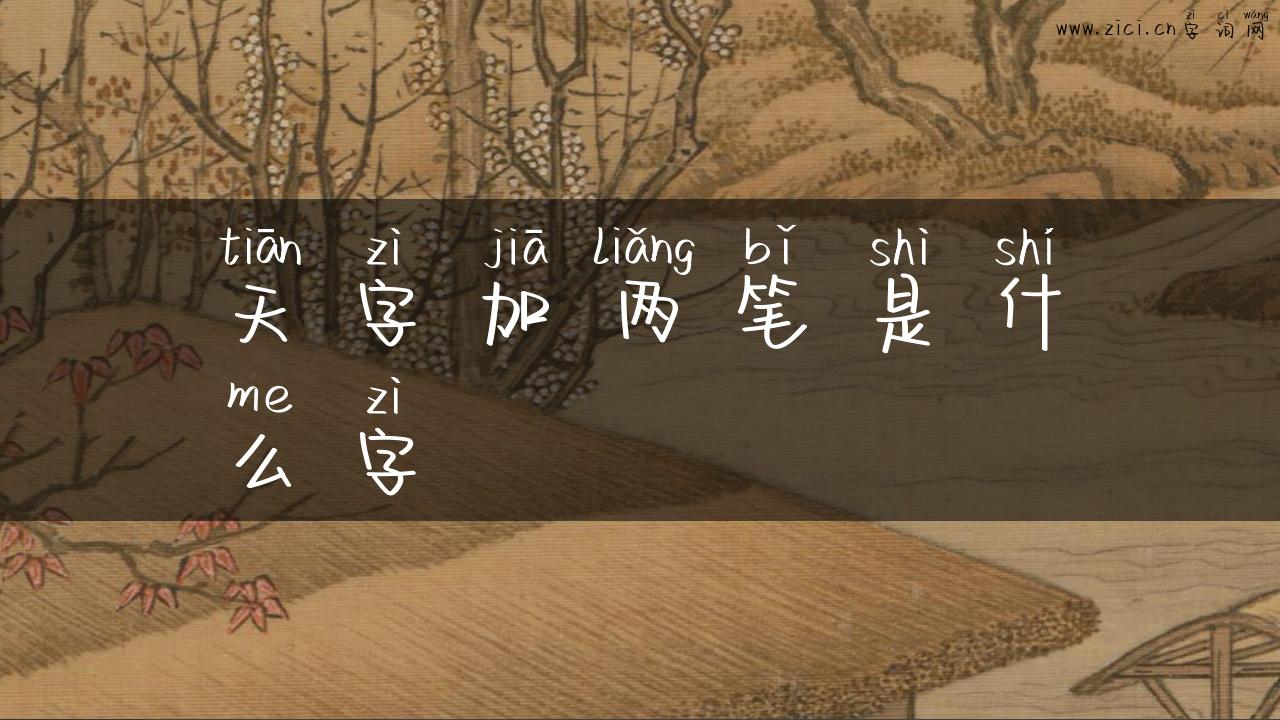 zì cí wǎng
www.zici.cn字词网
tiān zì jiā liǎng bǐ shì shí
天字加两笔是什
me zì
么字